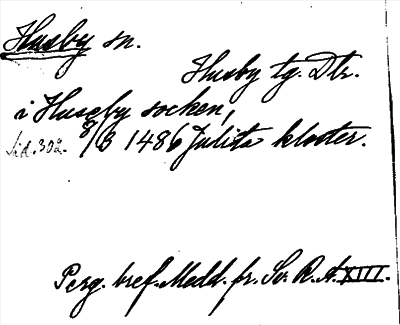 Husby sn.
Husby tg. Dlr.
i Huseby socken,
Sid. 302. 8/3 1486 Julita kloster.
Perg. bref. Medd. fr. Sv. R. A. XIII.